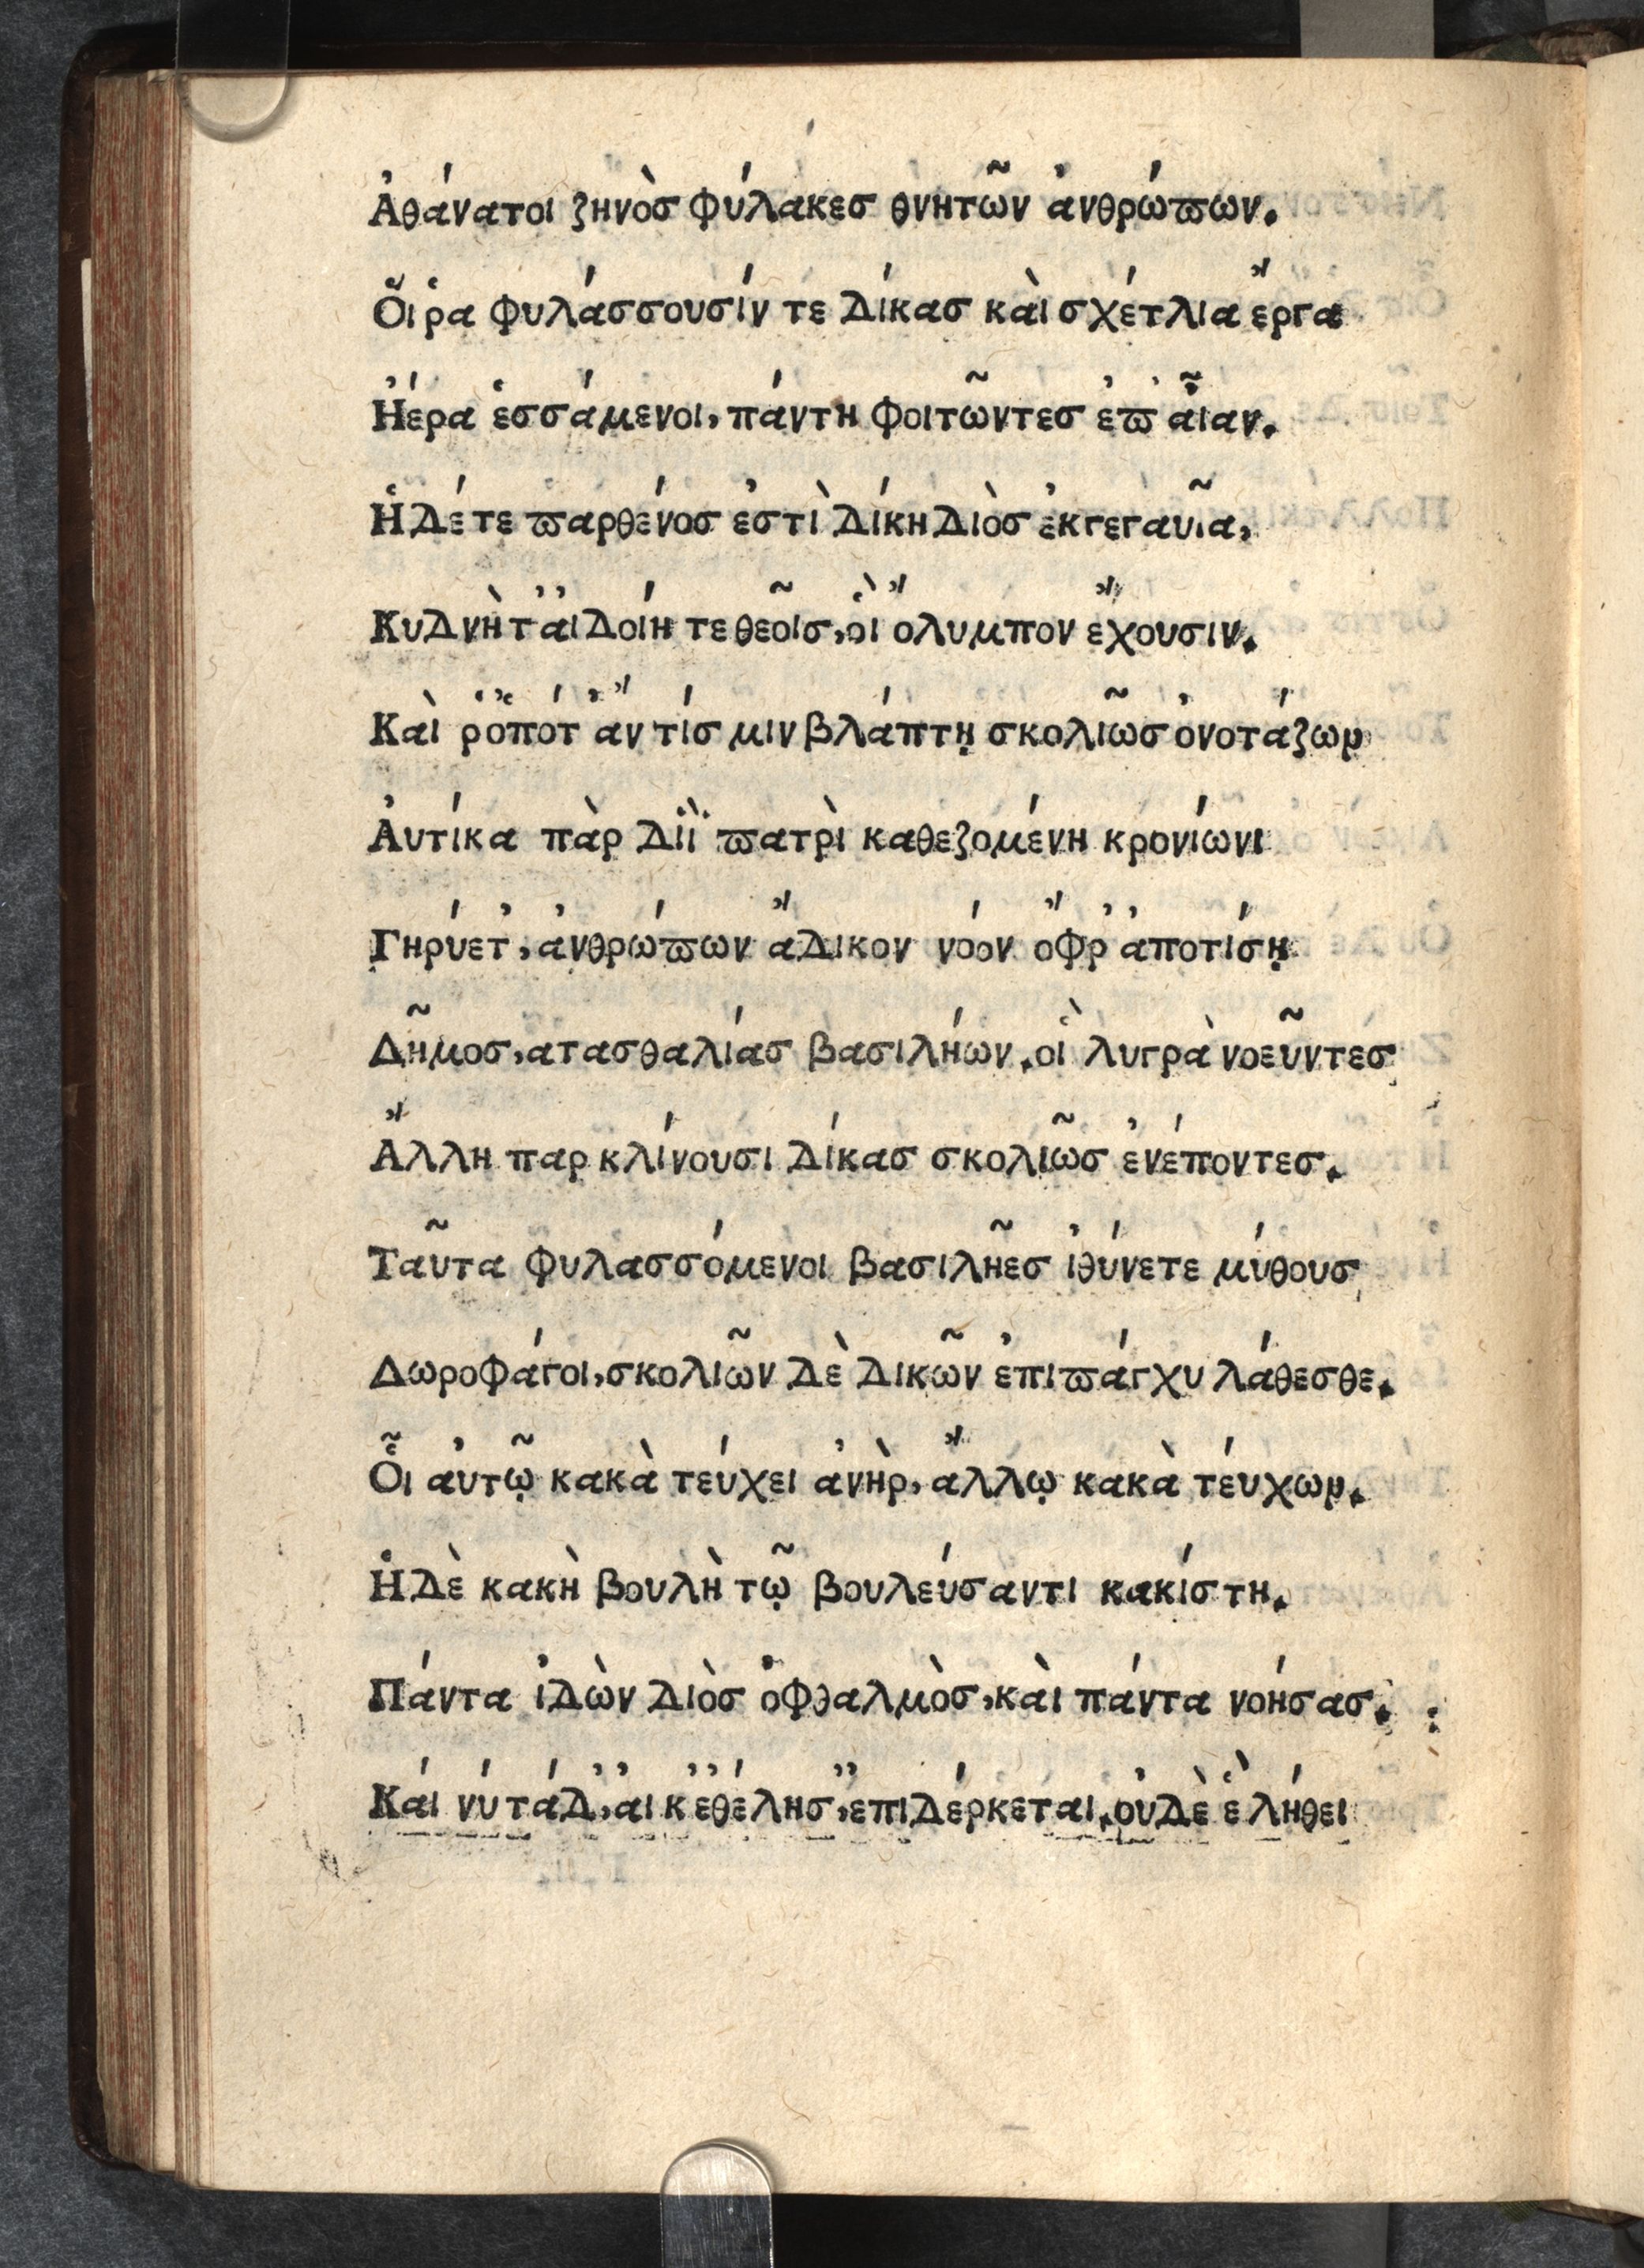 Ἀθάνατοι ζηνὸσ φύλακεσ θνητῶν ἀνθρώϖων.
Οἵ ῥα φυλάσσουσίν τε δίκασ καὶ σχέτλια ἔργα
Ἠέρα ἑσσάμενοι, πάντη φοιτῶντεσ ἐϖ ἆιαν.
Ἡ δέ τε ϖαρθένοσ ἐστὶ δίκη διὸσ ἐκγεγαυῖα,
Κυδνὴ τ᾽ ἀιδοίη τε θεοῖσ, οἳ ὄλυμπον ἔχουσιν.
Καὶ ῥ ὁπότ᾽ ἄν τίσ μιν βλάπτῃ σκολιῶσ ὀνοτάζων
Ἀυτίκα πὰρ διῒ ϖατρὶ καθεζομένη κρονίωνι
Γηρύετ᾽, ἀνθρώϖων ἄδικον νόον ὄφρ᾽ ἀποτίσῃ
Δῆμοσ, ατασθαλίασ βασιλήων. οἳ λυγρὰ νοεῦντεσ
Ἄλλη παρ κλίνουσι δίκασ σκολιῶσ ἐνέποντεσ.
Ταῦτα φυλασσόμενοι βασιλῆεσ ἰθύνετε μύθουσ
Δωροφάγοι, σκολιῶν δὲ δικῶν ἐπιϖάγχυ λάθεσθε.
Οἷ ἀυτῷ κακὰ τέυχει ἀνὴρ, ἄλλῳ κακὰ τέυχων.
Ἡ δὲ κακὴ βουλὴ τῷ βουλέυσαντι κακίστη.
Πάντα ἰδὼν διὸσ ὀφθαλμὸσ, καὶ πάντα νοήσασ.
Καί νύ τάδ᾽, αἰ κ᾽ ἐθέλησ᾽, ἐπιδέρκεται. ὀυδὲ ἓ λήθει